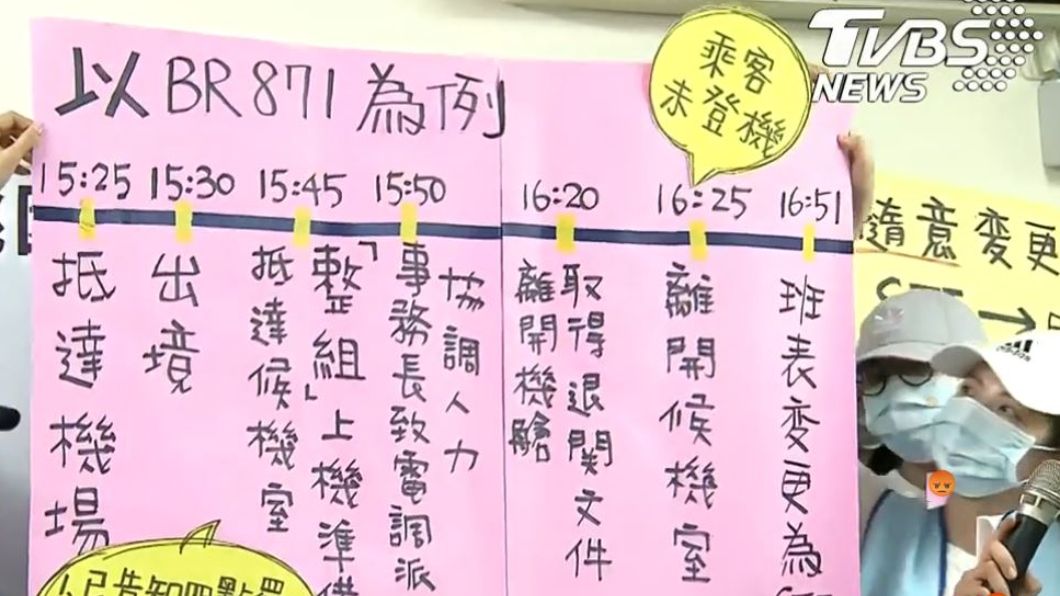 以BR871為例
乘客
未登機
TVBS
NEWS
15:25
15:30
15:45
15:50
16:20
16:25
16:51
抵達機場
出境
抵達候機室
「整組」上機準備
事務長致電調派
協調人力
取得退関文件
離開機艙
離開候機室
班表變更為
隨意變更
人已告知四點罷